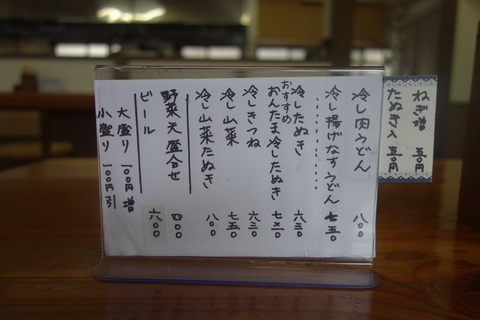 ねぎ増 五〇円
たぬき入 五〇円
冷し肉うどん 八〇〇
冷し揚げなすうどん 七五〇
冷したぬき 六三〇
おすすめ
おんたま冷したぬき 七三〇
冷しきつね 六三〇
冷し山菜 七五〇
冷し山菜たぬき 八〇〇
野菜天盛合せ 四〇〇
ビール 六〇〇
大盛り 一〇〇円増
小盛り 一〇〇円引